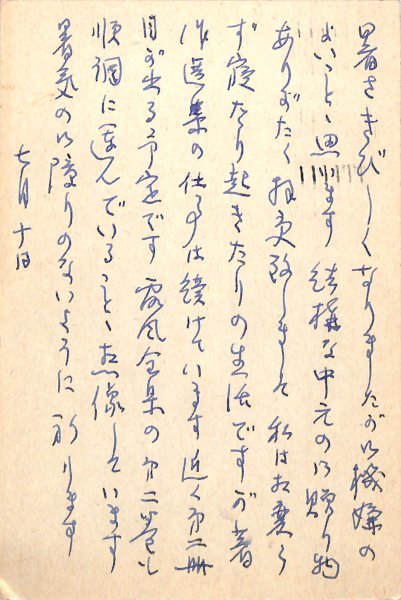 暑さきびしくなりましたが御機嫌の
よいことゝ思ひます 結構な中元の御贈り物
ありがたく拝受致しました 私は相変ら
ず寝たり起きたりの生活ですが著
作選集の仕事は続けています 近く第二冊
目が出る予定です 露風全集の第二巻も
順調に運んでいることゝ想像しています
暑気の御障りのないように祈ります
七月十日